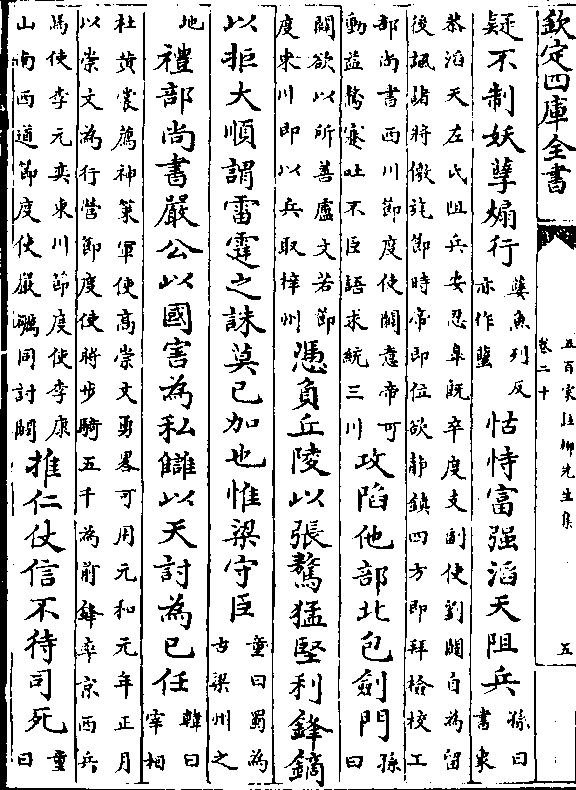 欽定四庫全書
五百家註柳先生集
卷二十
五
疑不制妖孽煽行
孽魚列反
亦作蠥
怙恃富强滔天阻兵
孫曰
書象
恭滔天左氏阻兵安忍臯既卒度支副使劉闢自為留
後諷諸將徼旄節時帝即位欲静鎮四方即拜檢校工
部尚書西川節度使闢意帝可
動益驁蹇吐不臣語求統三川
攻陷他部北包劍門
孫
曰
闢欲以所善盧文若節
度東川即以兵取梓州
憑負丘陵以張驁猛堅利鋒鏑
以拒大順謂雷霆之誅莫已加也惟梁守臣
童曰蜀為
古梁州之
地
禮部尚書嚴公以國害為私讎以天討為已任
韓曰
宰相
杜黄裳薦神策軍使高崇文勇畧可用元和元年正月
以崇文為行營節度使將步騎五千為前鋒率京西兵
馬使李元奕東川節度使李康
山南西道節度使嚴礪同討闢
推仁仗信不待司死
童
曰